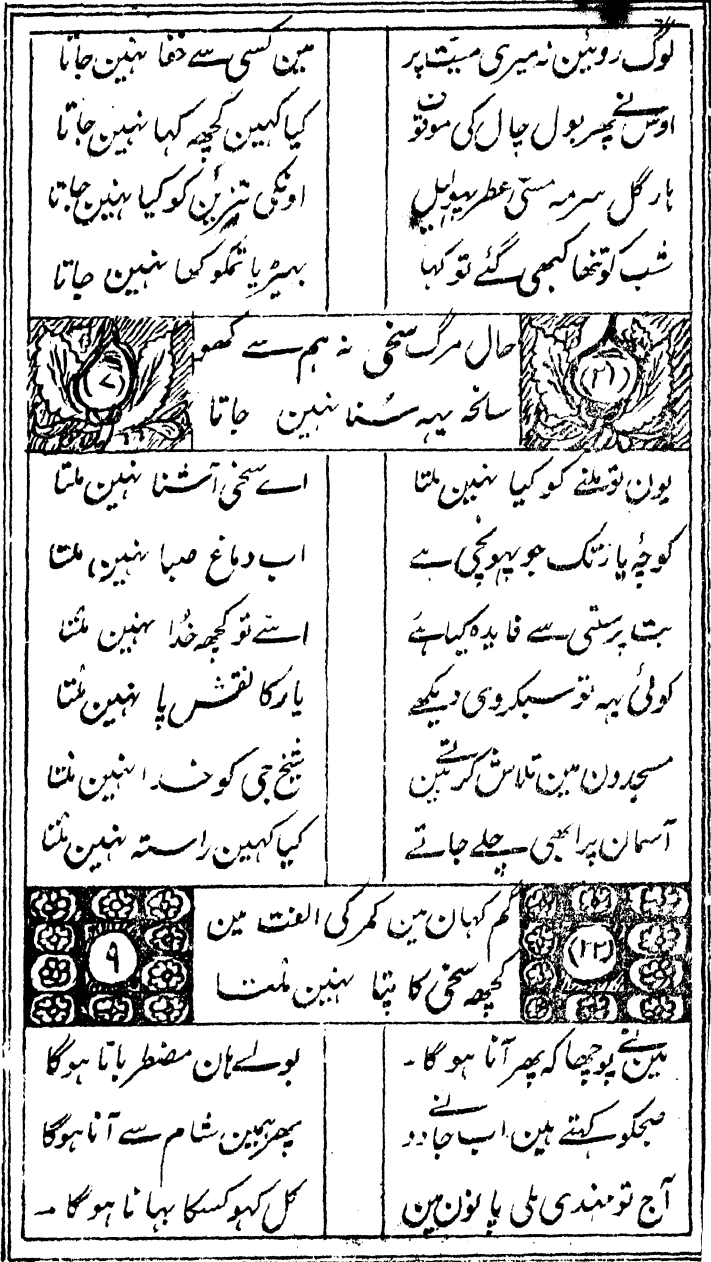 لوگ روئین نہ میری میت پر مین کسی سے خفا نہین جاتا
اوس نے پھر بول چال کی موقوف کیا کہین کچھ کہا نہین جاتا
ہار گل سرمہ مسی عطر اونکی کو کیا نہین جاتا
شب کو تنہا کبھی گئے تو کہا بہیڑیا تمکو کھا نہین جاتا
(۲۱) حال مرگ سخی نہ ہم سے کھو (۷)
سانحہ یہہ سُنا نہین جاتا
یون تو ملنے کو کیا نہین ملتا اے سخی آشنا نہین ملتا
کوچۂ یار تک جو پہونچی ہے اب دماغ صبا نہین ملتا
بت پرستی سے فایدہ کیا ہے اسّے تو کچھ خُدا نہین ملتا
کوئی یہہ تو سبکروی دیکھے یار کا نقش پا نہین مُلتا
مسجدون مین تلاش کرتے ہین شیخ جی کو خدا نہین ملتا
آسمان پر ابھی چلے جاتے کیا کہین راستہ نہین مُلتا
(۲۲) گم کہان مین کمر کی الفت مین ۹
کچھہ سخی کا پتا نہین مُلتا
مین نے پوچھا کہ پھر آنا ہو گا ۔ بولے ہان مضطر باتا ہوگا
صبحکو کہتے ہین اب جانے دو پھر ہمین شام سے آنا ہوگا
آج تو مہندی ملی پانون مین کل کہو کسکا بہانا ہو گا ۔